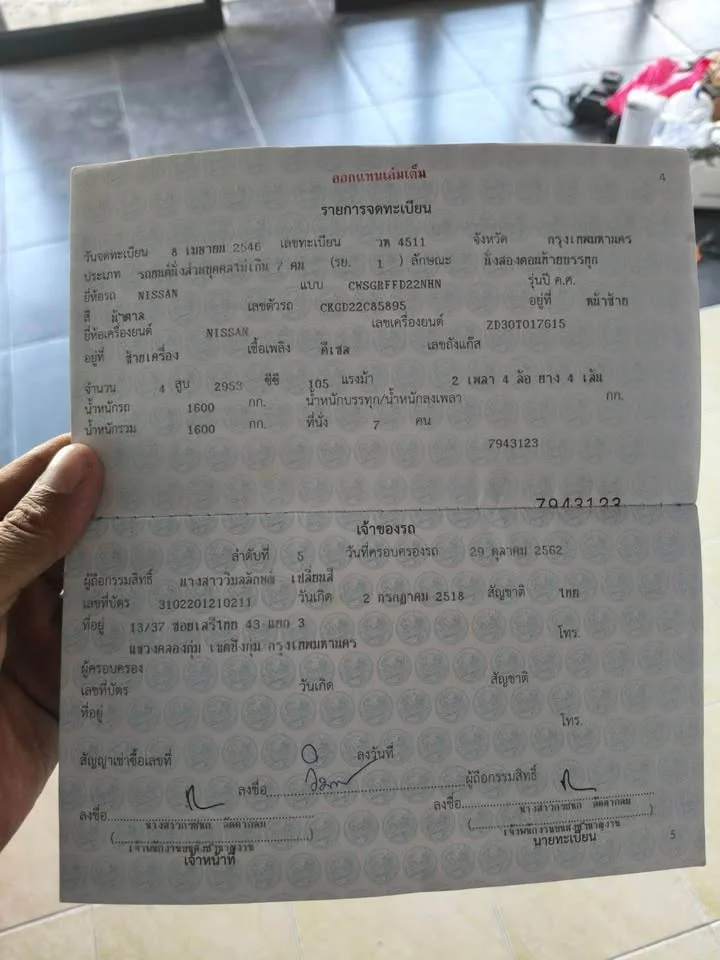 ออกแทนเล่มเต็ม
4
รายการจดทะเบียน
วันจดทะเบียน 8 เมษายน 2546 เลขทะเบียน วท 4511 จังหวัด กรุงเทพมหานคร
ประเภท รถยนต์นั่งส่วนบุคคลไม่เกิน 7 คน (รย. 1 ) ลักษณะ นั่งสองตอนท้ายบรรทุก
ยี่ห้อรถ NISSAN แบบ CWSGRFFD22NHN รุ่นปี ค.ศ.
สี น้ำตาล เลขตัวรถ CKGD22C85895 อยู่ที่ หน้าซ้าย
ยี่ห้อเครื่องยนต์ NISSAN เลขเครื่องยนต์ ZD30T017615
อยู่ที่ ซ้ายเครื่อง เชื้อเพลิง ดีเซล เลขถังแก๊ส
จำนวน 4 สูบ 2953 ซีซี 105 แรงม้า 2 เพลา 4 ล้อ ยาง 4 เส้น
น้ำหนักรถ 1600 กก. น้ำหนักบรรทุก/น้ำหนักลงเพลา กก.
น้ำหนักรวม 1600 กก. ที่นั่ง 7 คน
7943123
7943123
เจ้าของรถ
ลำดับที่ 5 วันที่ครอบครองรถ 29 ตุลาคม 2562
ผู้ถือกรรมสิทธิ์ นางสาววิมลลักษณ์ เปลี่ยนสี
เลขที่บัตร 3102201210211 วันเกิด 2 กรกฎาคม 2518 สัญชาติ ไทย
ที่อยู่ 13/37 ซอยเสรีไทย 43 แยก 3 โทร.
แขวงคลองกุ่ม เขตบึงกุ่ม กรุงเทพมหานคร
ผู้ครอบครอง
เลขที่บัตร วันเกิด สัญชาติ
ที่อยู่ โทร.
สัญญาเช่าซื้อเลขที่ ลงวันที่
ลงชื่อ ลงชื่อ ผู้ถือกรรมสิทธิ์ ลงชื่อ
เจ้าหน้าที่ นายทะเบียน
5